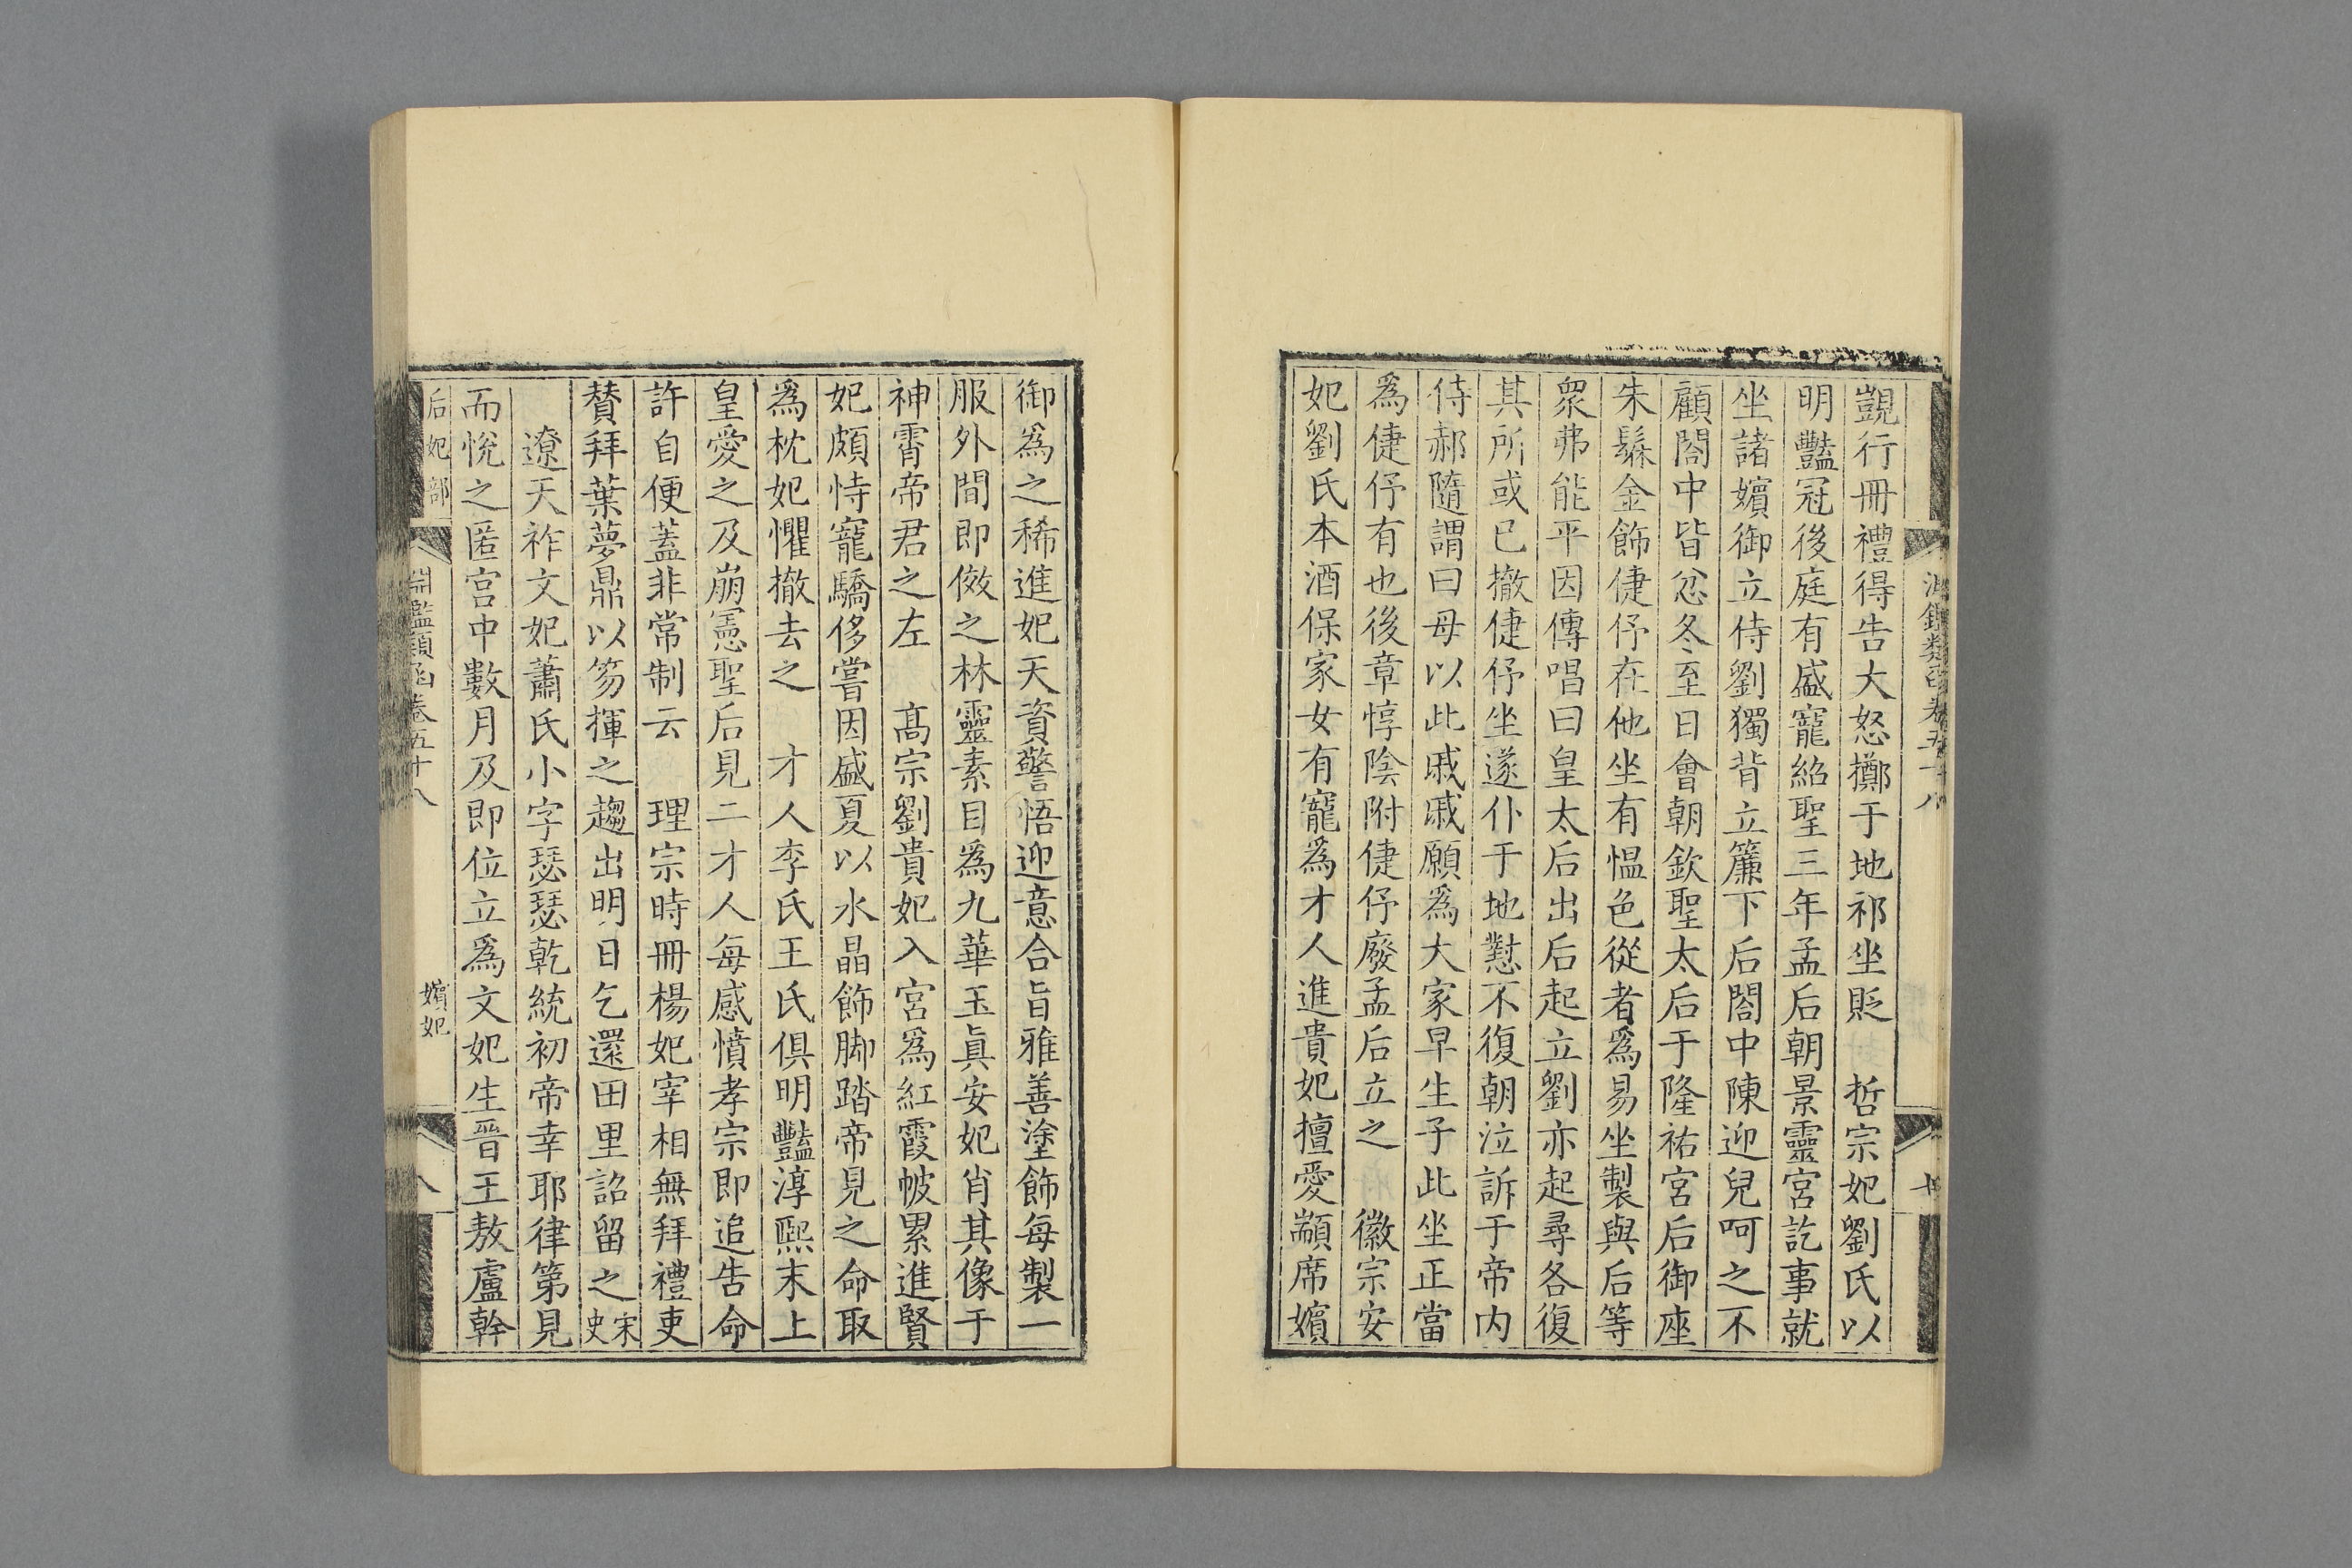 覬行冊禮得告大怒擲于地祁坐貶　哲宗妃劉氏以
明豔冠後庭有盛寵紹聖三年孟后朝景靈宮訖事就
坐諸嬪御立侍劉獨背立簾下后閤中陳迎兒呵之不
顧閤中皆忿冬至日會朝欽聖太后于隆祐宮后御座
朱鬃金飾倢伃在他坐有慍色從者為易坐製與后等
衆弗能平因傳唱曰皇太后出后起立劉亦起尋各復
其所或已撤倢伃坐遂仆于地懟不復朝泣訴于帝内
侍郝隨謂曰毋以此戚戚願爲大家早生子此坐正當
爲倢伃有也後章惇陰附倢伃廢孟后立之　徽宗安
妃劉氏本酒保家女有寵爲才人進貴妃擅愛顓席嬪
御爲之稀進妃天資警悟迎意合旨雅善塗飾每製一
服外間即倣之林靈素目爲九華玉眞安妃肖其像于
神霄帝君之左　高宗劉貴妃入宮爲紅霞帔累進賢
妃頗恃寵驕侈嘗因盛夏以水晶飾脚踏帝見之命取
爲枕妃懼撤去之　才人李氏王氏俱明豔淳熙末上
皇愛之及崩憲聖后見二才人每感憤孝宗即追告命
許自便蓋非常制云　理宗時冊楊妃宰相無拜禮吏
賛拜葉夢鼎以笏揮之趨出明日乞還田里詔留之宋史
遼天祚文妃蕭氏小字瑟瑟乾統初帝幸耶律第見
而悅之匿宮中數月及即位立爲文妃生晉王敖盧幹
后妃部　淵鑑類函卷五十八　嬪妃　八